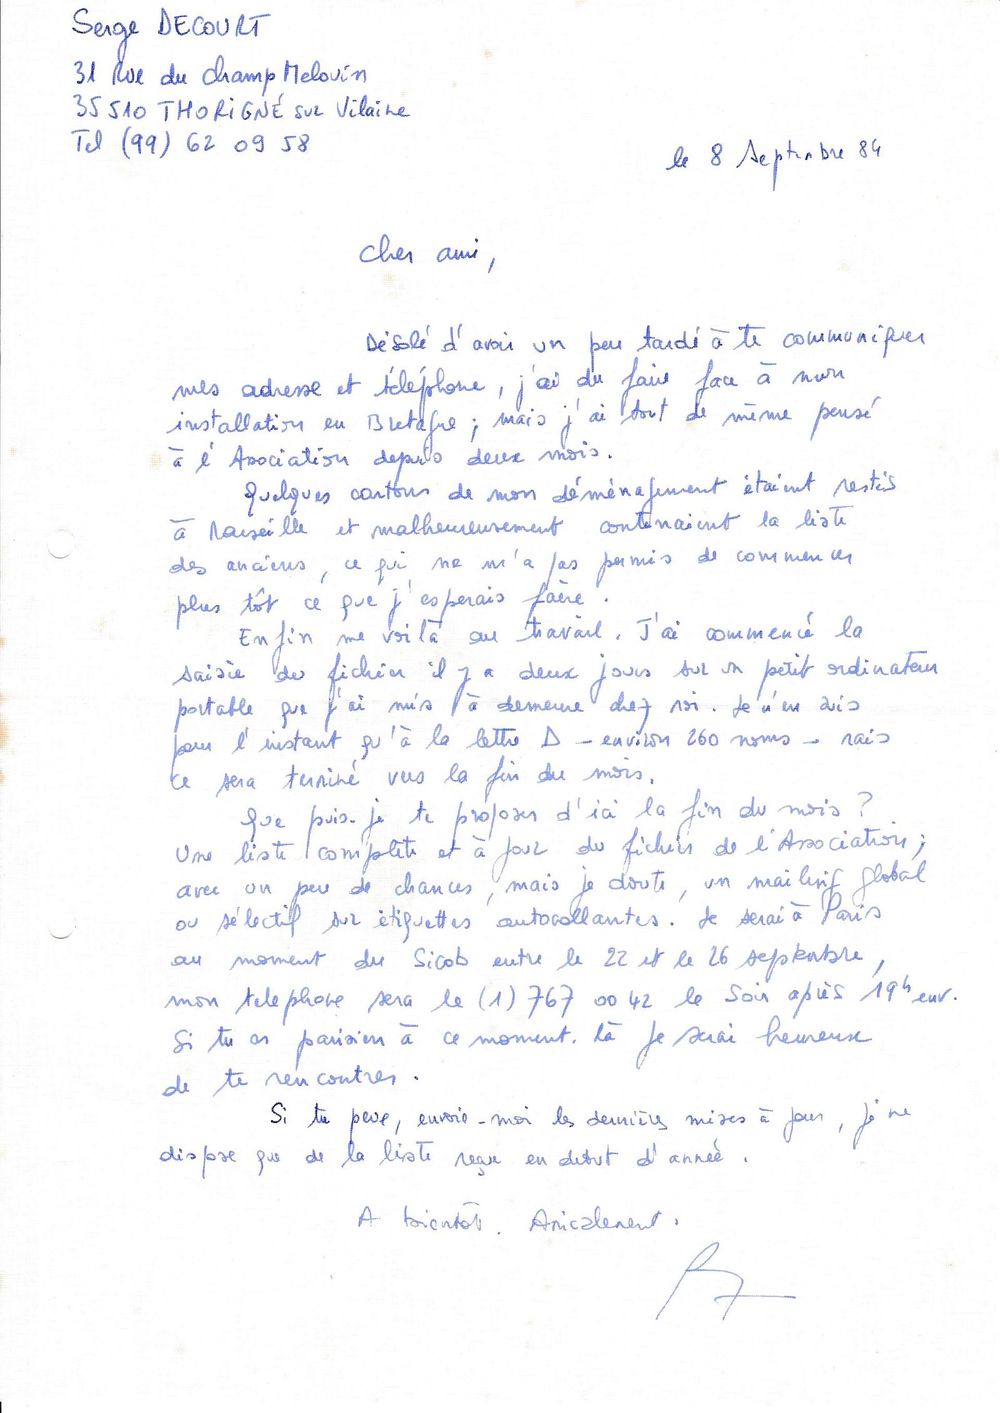 Serge DECOURT
31 Rue du Champ Melovin
35510 THORIGNÉ sur Vilaine
Tel (99) 62 09 58
le 8 Septembre 84
Cher ami,
Désolé d'avoir un peu tardé à te communiquer
mes adresse et téléphone, j'ai du faire face à mon
installation en Bretagne ; mais j'ai tout de même pensé
à l'Association depuis deux mois.
Quelques cartons de mon déménagement étaient restés
à Marseille et malheureusement contenaient la liste
des anciens, ce qui ne m'a pas permis de commencer
plus tôt ce que j'esperais faire.
Enfin me voilà au travail. J'ai commencé la
saisie du fichier il y a deux jours sur un petit ordinateur
portable que j'ai mis à demeure chez moi. Je n'en suis
pour l'instant qu'à la lettre D - environ 260 noms - mais
ce sera terminé vers la fin du mois.
Que puis-je te proposer d'ici la fin du mois ?
Une liste complète et à jour du fichier de l'Association ;
avec un peu de chances, mais je doute, un mailing global
ou sélectif sur étiquettes autocollantes. Je serai à Paris
au moment du Sicob entre le 22 et le 26 septembre,
mon telephone sera le (1) 767 00 42 le soir après 19h env.
Si tu es parisien à ce moment-là je serai heureux
de te rencontrer.
Si tu peux, envoie-moi les dernières mises à jour, je ne
dispose que de la liste reçue en debut d'année.
A bientôt. Amicalement.